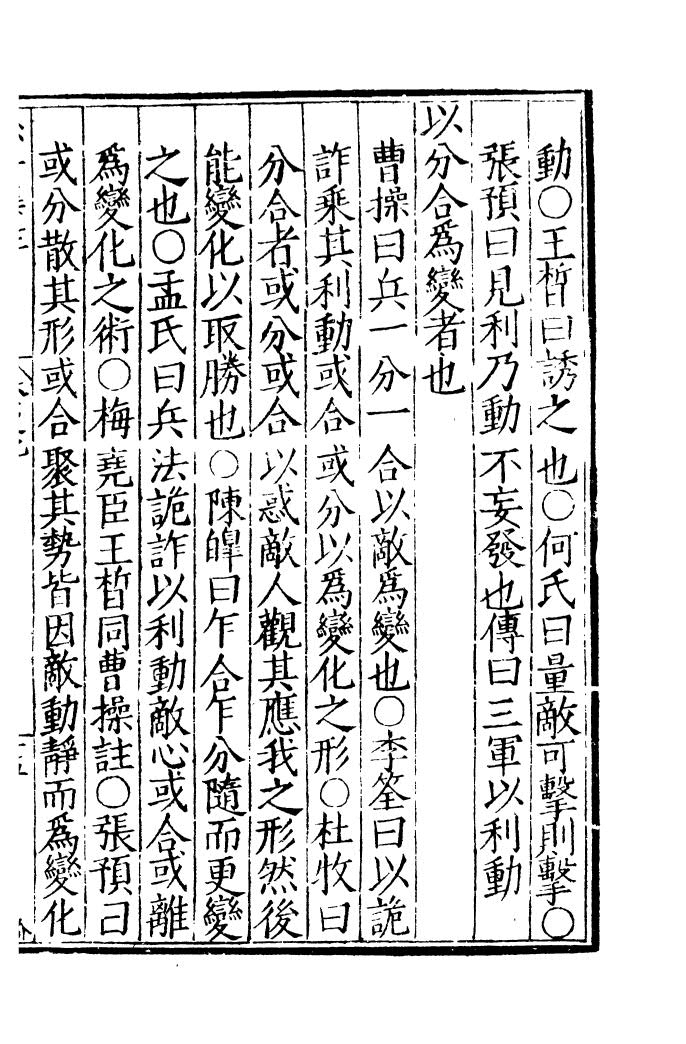 動○王晳曰誘之也○何氏曰量敵可擊則擊○
張預曰見利乃動不妄發也傳曰三軍以利動
以分合爲變者也
曹操曰兵一分一合以敵爲變也○李筌曰以詭
詐乘其利動或合或分以爲變化之形○杜牧曰
分合者或分或合以惑敵人觀其應我之形然後
能變化以取勝也○陳皥曰乍合乍分隨而更變
之也○孟氏曰兵法詭詐以利動敵心或合或離
爲變化之術○梅堯臣王晳同曹操註○張預曰
或分散其形或合聚其勢皆因敵動靜而爲變化